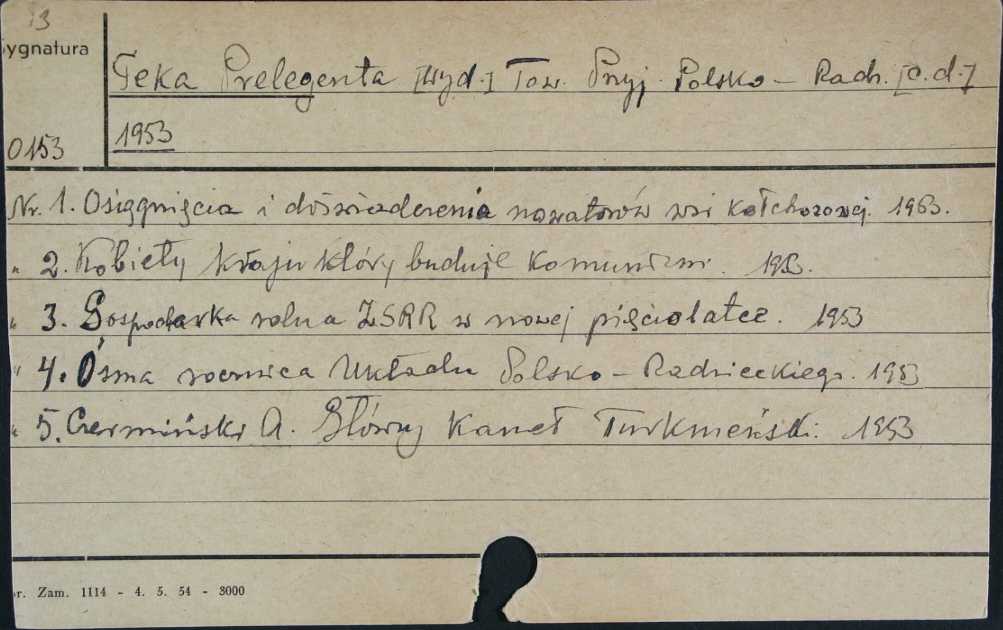 13
ygnatura
Teka Prelegenta [wyd.] Tow. Przyj. Polsko - Radz. [c.d.]
0153
1953
Nr. 1. Osiągnięcia i doświadczenia nowatorów wsi kołchozowej. 1953.
" 2. Kobiety kraju który buduje komunizm. 1953.
" 3. Gospodarka rolna ZSRR w nowej pięciolatce. 1953
" 4. Ósma rocznica Układu Polsko - Radzieckiego. 1953
" 5. Czermiński A. Główny Kanał Turkmeński. 1953
r. Zam. 1114 - 4. 5. 54 - 3000